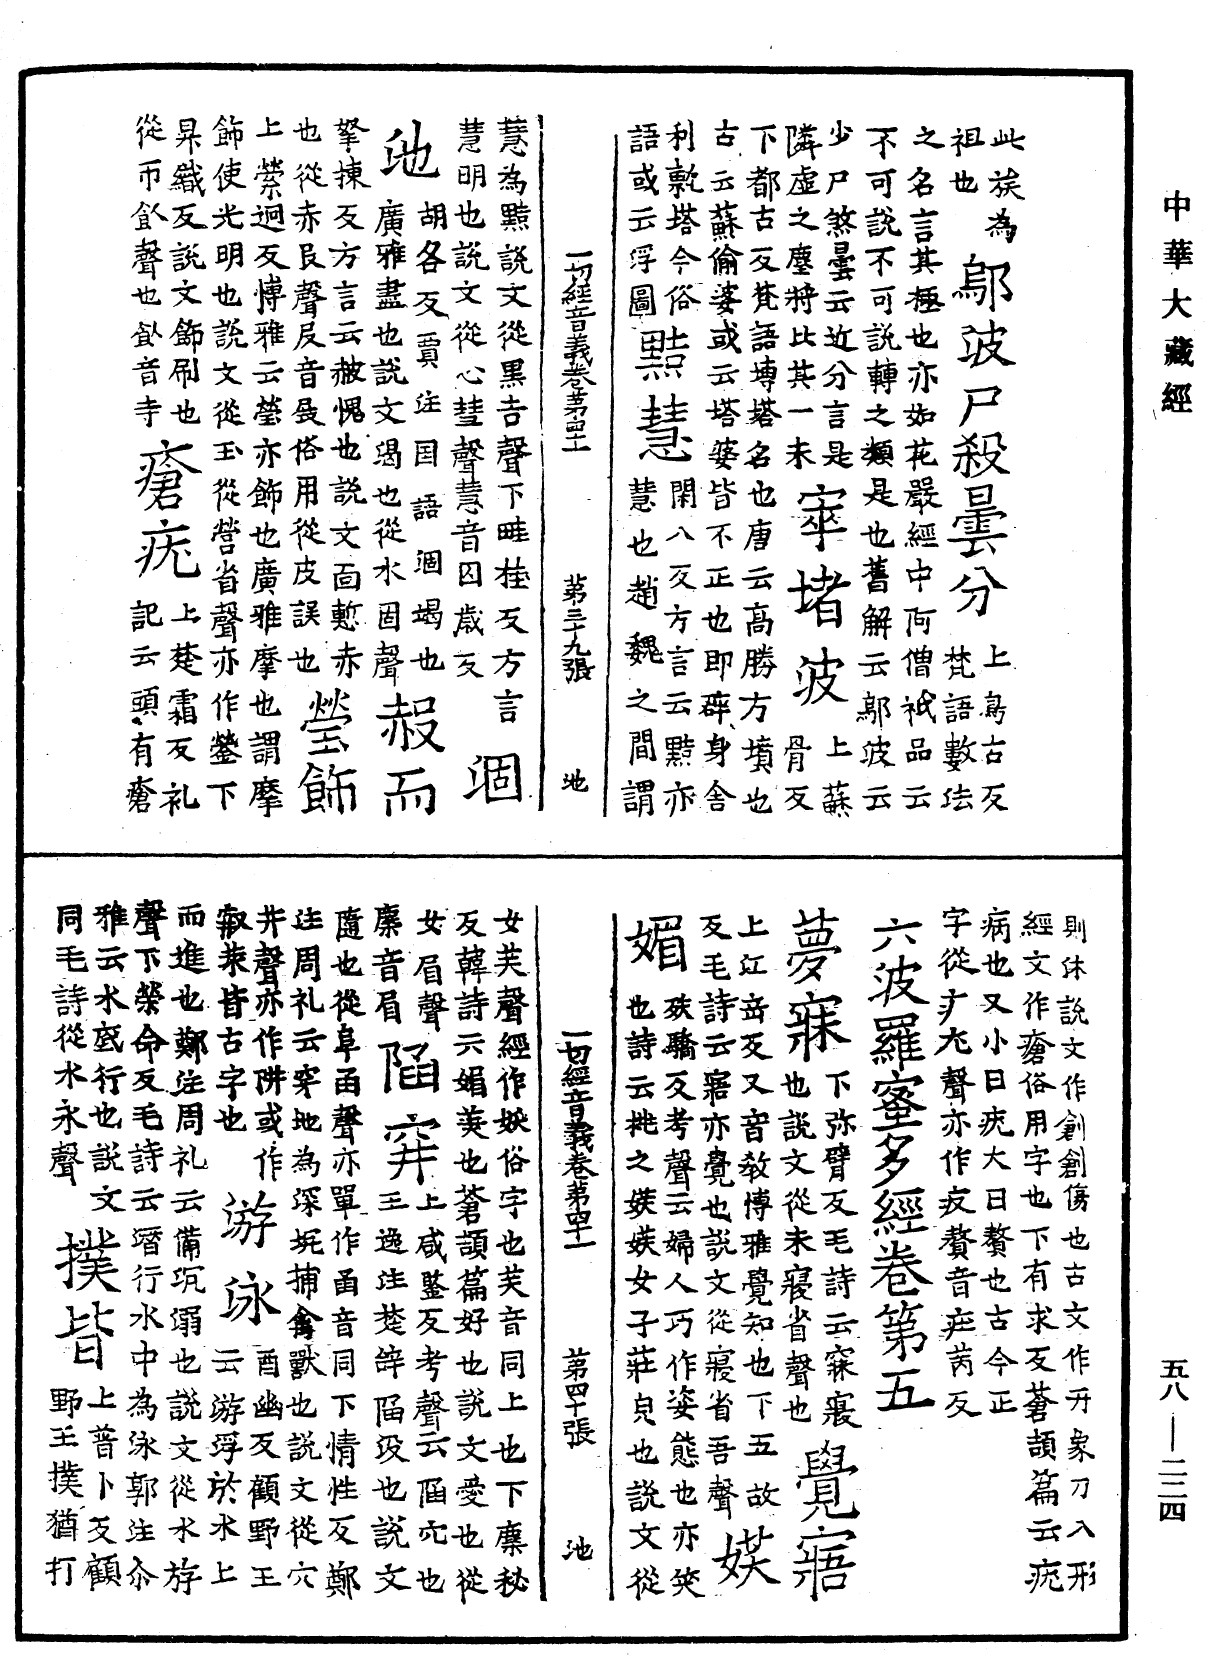 中華大藏經
此族為
祖也
鄔波尸殺曇分
上烏古反
梵語數法
之名言其極也亦如花嚴經中阿僧祇品云
不可說不可說轉之類是也舊解云鄔波云
少尸煞曇云近分言是
隣虛之塵將比其一未
窣堵波
上蘇
骨反
下都古反梵語塼塔名也唐云高勝方墳也
古云蘇偷婆或云塔婆皆不正也即碎身舍
利㲉塔今俗
語或云浮圖
黠慧
閑八反方言云黠亦
慧也趙魏之間謂
一切經音義卷第四十一 第三十九張 池
慧為黠說文從黑吉聲下畦桂反方言
慧明也說文從心彗聲慧音囚歲反
涸
池
胡各反賈注國語涸竭也
廣雅盡也說文渴也從水固聲
赧而
拏揀反方言云赧愧也說文面慙赤
也從赤㞋聲㞋音展俗用從皮誤也
瑩飾
上縈迥反博雅云瑩亦飾也廣雅摩也謂摩
飾使光明也說文從玉從營省聲亦作鎣下
昇織反說文飾刷也
從巾飤聲也飤音寺
瘡疣
上楚霜反礼
記云頭有瘡
則沐說文作創創傷也古文作刅象刀入形
經文作瘡俗用字也下有求反蒼頡篇云疣
病也又小曰疣大曰贅也古今正
字從疒尢聲亦作肬贅音芮反
六波羅蜜多經卷第五
夢寐
下弥臂反毛詩云寐寢
也說文從未寢省聲也
覺寤
上江岳反又音教博雅覺知也下五故
反毛詩云寤亦覺也說文從寢省吾聲
媄
媚
殀驕反考聲云婦人巧作姿態也亦笑
也詩云桃之媄媄女子莊皃也說文從
一切經音義卷第四十一 第四十張 池
女芺聲經作妖俗字也芺音同上也下麋秘
反韓詩云媚美也蒼頡篇好也說文愛也從
女眉聲
麋音眉
陷穽
上咸鑒反考聲云陷穴也
王逸注楚辝陷没也說文
隨也從阜臽聲亦單作臽音同下情性反鄭
注周礼云穿地為深坑捕禽獸也說文從穴
井聲亦作阱或作
皆古字也
游泳
酉幽反顧野王
云游浮於水上
而進也鄭注周礼云備沉溺也說文從水斿
聲下榮命反毛詩云潛行水中為泳郭注尒
雅云水底行也說文
同毛詩從水永聲
撲皆
上普卜反顧
野王撲猶打
五八—二二四